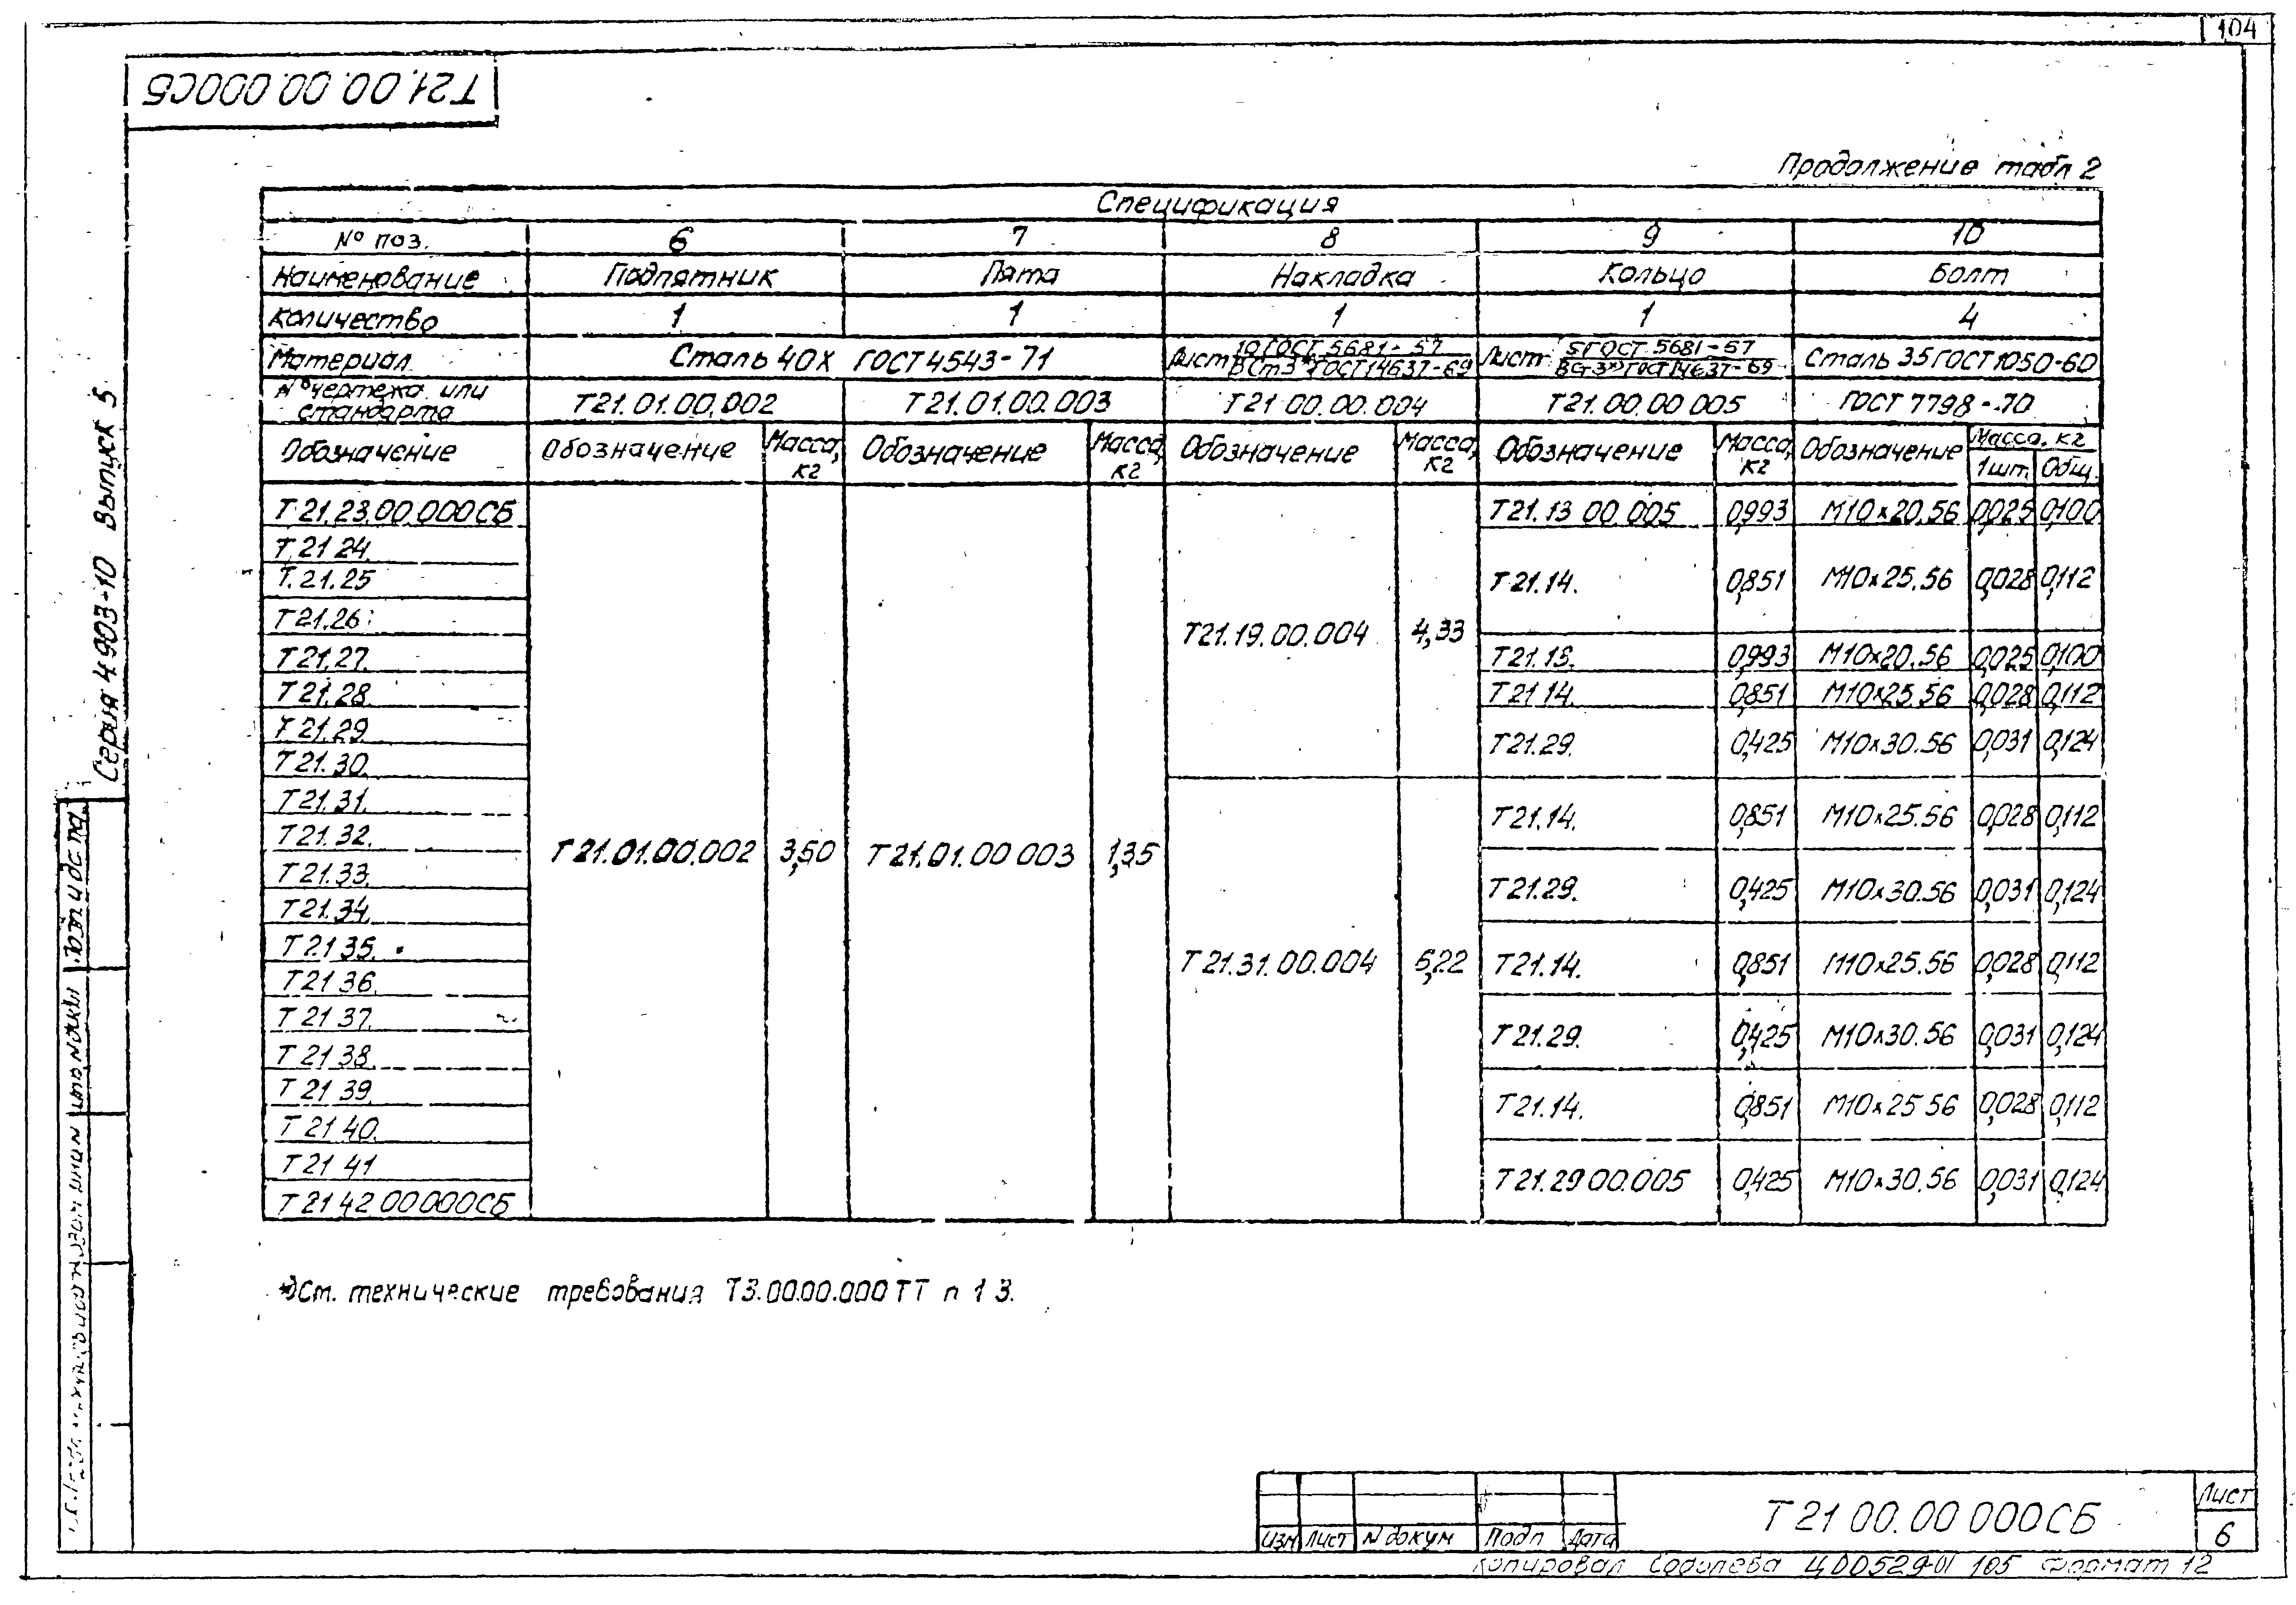 104
Т21.00.00.000СБ
Продолжение табл 2
Спецификация
№ поз. 6 7 8 9 10
Наименование Подпятник Пята Накладка Кольцо Болт
Количество 1 1 1 1 4
Материал Сталь 40Х ГОСТ 4543-71 Лист 10 ГОСТ 5681-57 / ВСт3*) ГОСТ 14637-69 Лист 5 ГОСТ 5681-57 / ВСт3*) ГОСТ 14637-69 Сталь 35 ГОСТ 1050-60
№ чертежа или стандарта Т21.01.00.002 Т21.01.00.003 Т21 00.00.004 Т21.00.00 005 ГОСТ 7798-70
Обозначение Обозначение Масса, кг Обозначение Масса, кг Обозначение Масса, кг Обозначение Масса, кг Обозначение Масса, кг 1шт. Общ.
Т 21.23.00.000СБ Т21.13 00 005 0,993 М10х20.56 0,025 0,100
Т 21 24.
Т.21.25 Т21.14. 0,851 М10х25.56 0,028 0,112
Т21.26
Т21.19.00.004 4,33
Т21.27. Т21.13. 0,993 М10х20.56 0,025 0,100
Т21.28. Т21 14. 0,851 М10х25.56 0,028 0,112
Т 21.29 Т21.29. 0,425 М10х30.56 0,031 0,124
Т 21.30.
Т21.31. Т21.14. 0,851 М10х25.56 0,028 0,112
Т21.32.
Т21.01.00.002 3,50 Т21.01.00 003 1,35
Т21.33. Т21.29. 0,425 М10х30.56 0,031 0,124
Т21.34.
Т21 35. Т21.31.00.004 5,22 Т21.14. 0,851 М10х25.56 0,028 0,112
Т21 36.
Т 21 37. Т21.29. 0,425 М10х30.56 0,031 0,124
Т 21 38.
Т 21 39. Т21.14. 0,851 М10х25 56 0,028 0,112
Т 21 40.
Т 21 41 Т21.29 00.005 0,425 М10х30.56 0,031 0,124
Т 21 42 00 000СБ
*) См. технические требования Т3.00.00.000 ТТ п 1 3.
Серия 4903-10 Выпуск 5
Т 21 00.00 000СБ
Лист
6
Изм Лист N докум Подп Дата
Копировал Ц00529-01 105 Формат 12